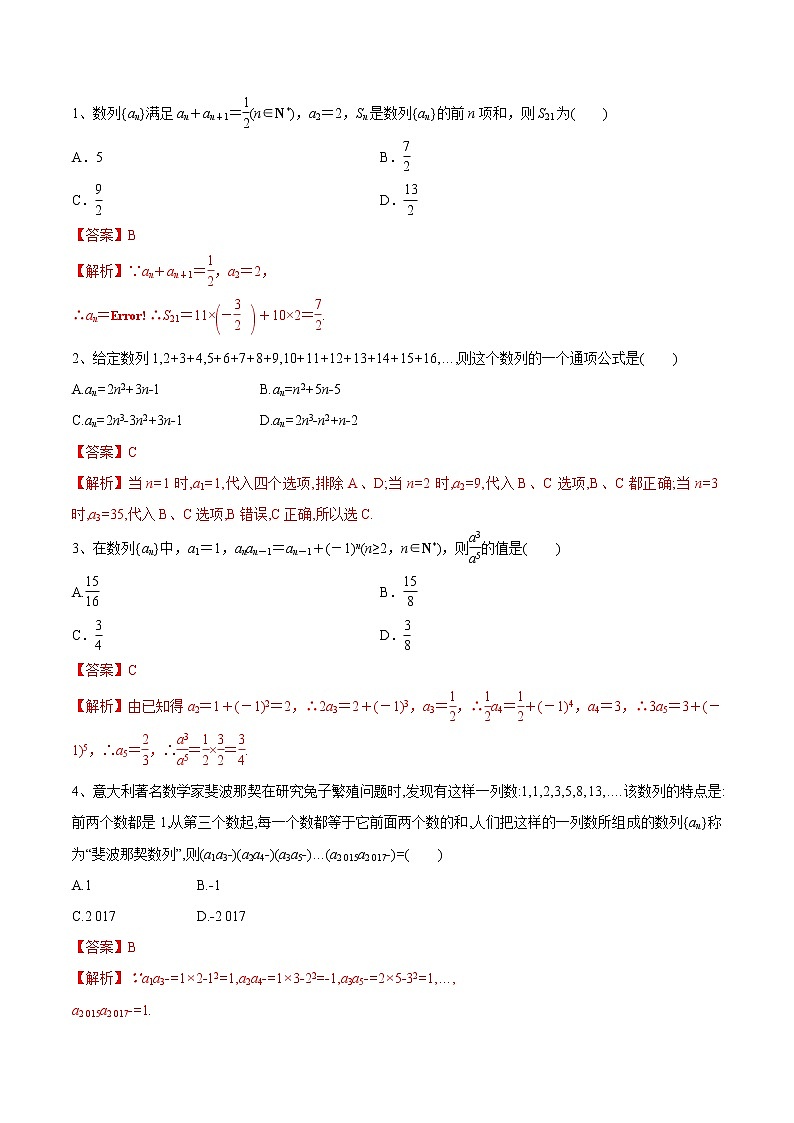 1、数列{aₙ}满足 aₙ+aₙ₊₁=1/2(n∈N*), a₂=2, Sₙ是数列{aₙ}的前 n 项和, 则 S₂₁为( )
A. 5 B. 7/2
C. 9/2 D. 13/2
【答案】B
【解析】∵aₙ+aₙ₊₁=1/2, a₂=2,
∴aₙ=Error! ∴S₂₁=11×(-3/2 )+10×2=7/2.
2、给定数列 1,2+3+4,5+6+7+8+9,10+11+12+13+14+15+16,…,则这个数列的一个通项公式是( )
A.aₙ=2n²+3n-1 B.aₙ=n²+5n-5
C.aₙ=2n³-3n²+3n-1 D.aₙ=2n³-n²+n-2
【答案】C
【解析】当 n=1 时,a₁=1,代入四个选项,排除 A、D;当 n=2 时,a₂=9,代入 B、C 选项,B、C 都正确;当 n=3
时,a₃=35,代入 B、C 选项,B 错误,C 正确,所以选 C.
3、在数列{aₙ}中, a₁=1, aₙaₙ₋₁=aₙ₋₁+(-1)ⁿ(n≥2, n∈N*), 则a³/a⁵的值是( )
A.15/16 B. 15/8
C. 3/4 D. 3/8
【答案】C
【解析】由已知得 a₂=1+(-1)²=2, ∴2a₃=2+(-1)³, a₃=1/2, ∴1/2a₄=1/2+(-1)⁴, a₄=3, ∴3a₅=3+(-
1)⁵, ∴a₅=2/3, ∴a³/a⁵=1/2×3/2=3/4.
4、意大利著名数学家斐波那契在研究兔子繁殖问题时,发现有这样一列数:1,1,2,3,5,8,13,….该数列的特点是:
前两个数都是 1,从第三个数起,每一个数都等于它前面两个数的和,人们把这样的一列数所组成的数列{aₙ}称
为“斐波那契数列”,则(a₁a₃-)(a₂a₄-)(a₃a₅-)…(a₂ ₀₁₅a₂ ₀₁₇-)=( )
A.1 B.-1
C.2 017 D.-2 017
【答案】B
【解析】∵a₁a₃-=1×2-1²=1,a₂a₄-=1×3-2²=-1,a₃a₅-=2×5-3²=1,…,
a₂ ₀₁₅a₂ ₀₁₇-=1.